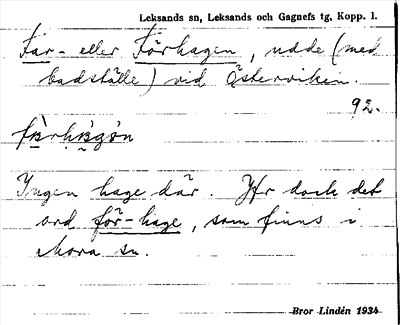 Leksands sn, Leksands och Gagnefs tg, Kopp. l.
Får- eller Förhagen, udde (med
badställe) vid Österviken.
92.
Ingen hage där. Jfr dock det
ord för-hage, som finns i
Mora sn.
Bror Lindén 1934